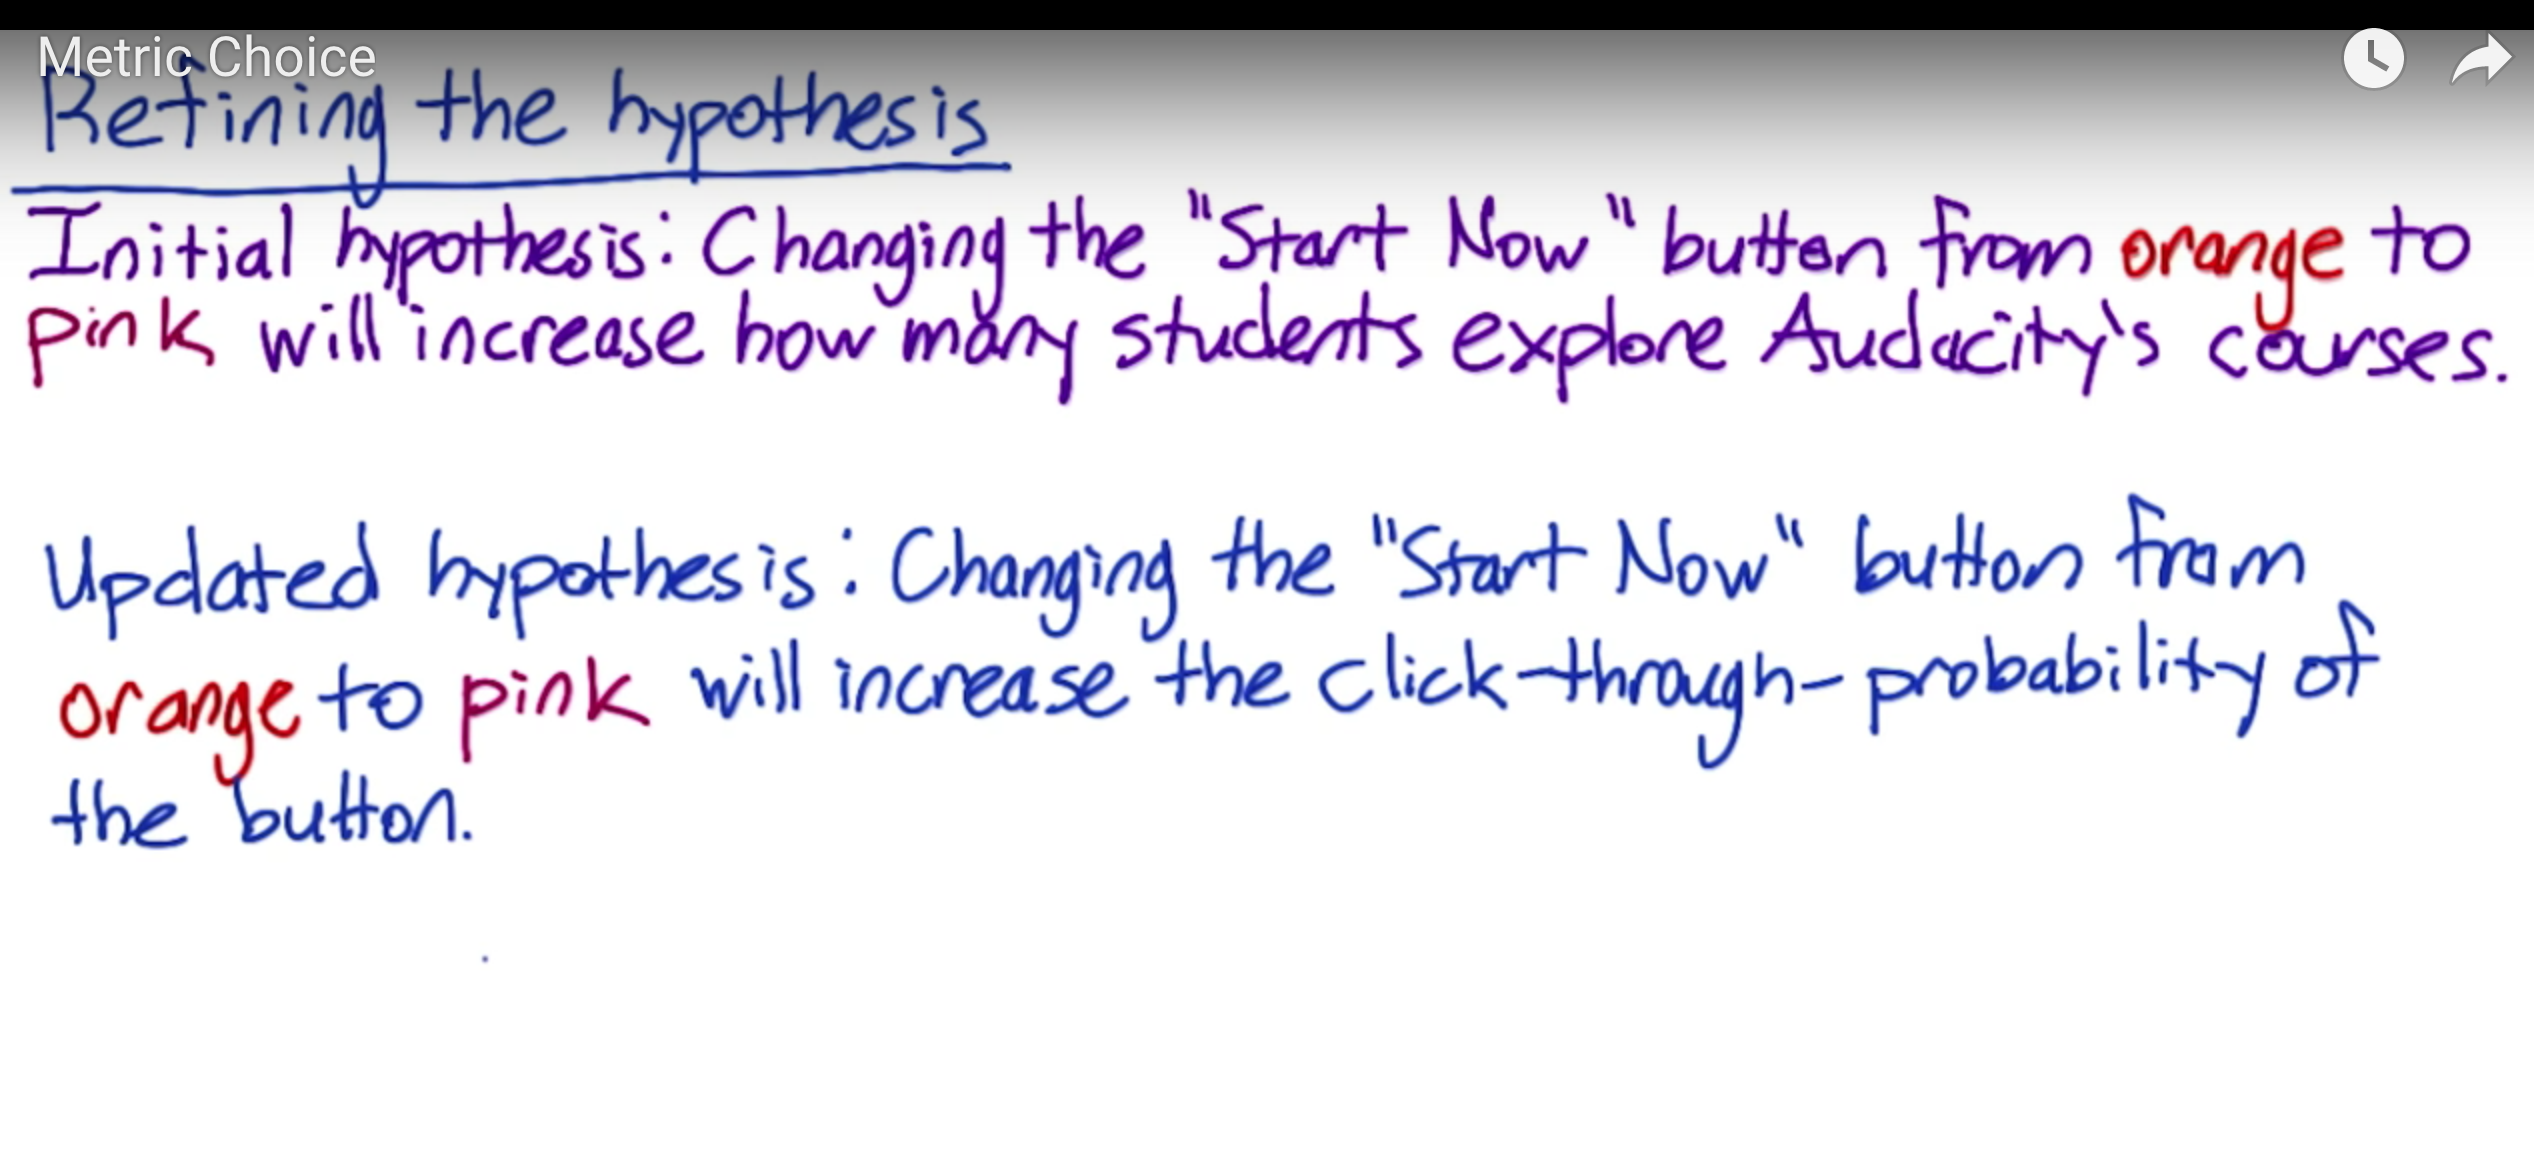 Metric Choice
Refining the hypothesis
Initial hypothesis: Changing the "Start Now" button from orange to
pink will increase how many students explore Audacity's courses.
Updated hypothesis: Changing the "Start Now" button from
orange to pink will increase the click-through-probability of
the button.